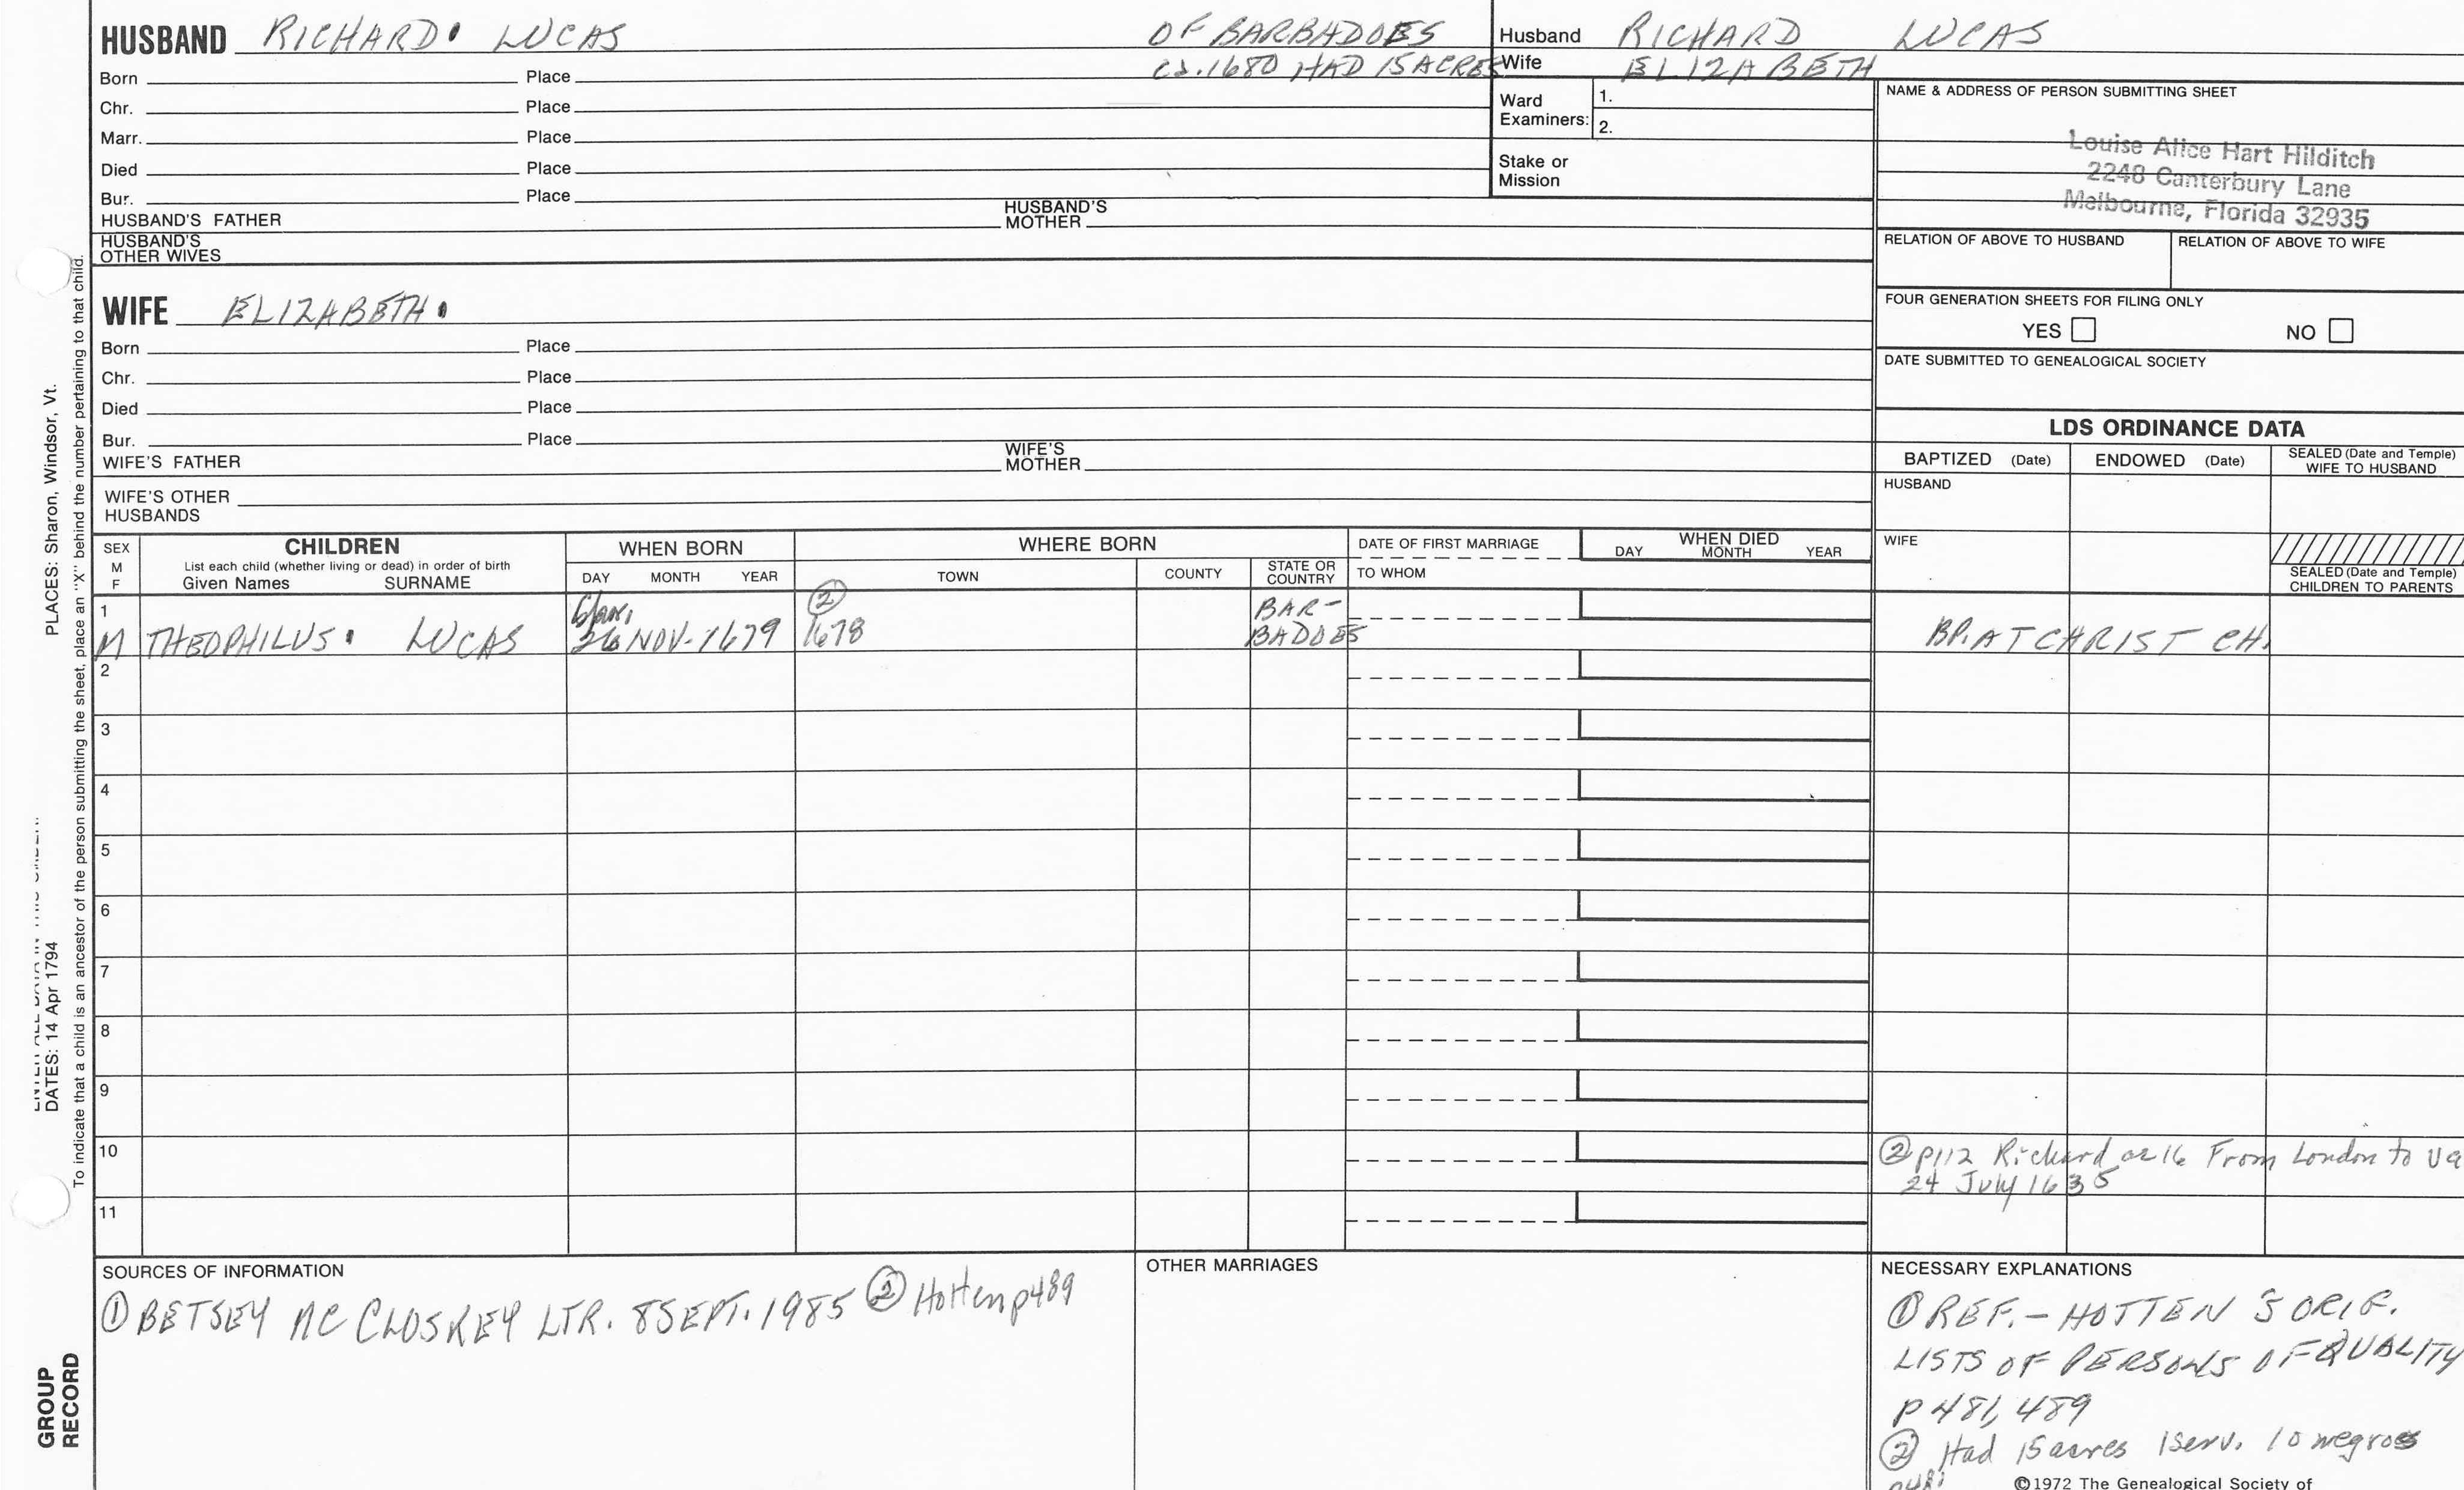 HUSBAND RICHARD. LUCAS OF BARBADOES
CA. 1680 HAD 15 ACRES
Born Place
Chr. Place
Marr. Place
Died Place
Bur. Place
HUSBAND'S FATHER HUSBAND'S MOTHER
HUSBAND'S OTHER WIVES
Husband RICHARD LUCAS
Wife ELIZABETH
Ward Examiners: 1.
2.
Stake or Mission
NAME & ADDRESS OF PERSON SUBMITTING SHEET
Louise Alice Hart Hilditch
2248 Canterbury Lane
Melbourne, Florida 32935
RELATION OF ABOVE TO HUSBAND RELATION OF ABOVE TO WIFE
FOUR GENERATION SHEETS FOR FILING ONLY
YES NO
DATE SUBMITTED TO GENEALOGICAL SOCIETY
WIFE ELIZABETH.
Born Place
Chr. Place
Died Place
Bur. Place
WIFE'S FATHER WIFE'S MOTHER
WIFE'S OTHER HUSBANDS
LDS ORDINANCE DATA
BAPTIZED (Date) ENDOWED (Date) SEALED (Date and Temple) WIFE TO HUSBAND
HUSBAND
WIFE
SEALED (Date and Temple) CHILDREN TO PARENTS
SEX M F
CHILDREN
List each child (whether living or dead) in order of birth
Given Names SURNAME
WHEN BORN
DAY MONTH YEAR
WHERE BORN
TOWN COUNTY STATE OR COUNTRY
DATE OF FIRST MARRIAGE
TO WHOM
WHEN DIED
DAY MONTH YEAR
1 ② BAR-
M THEOPHILUS. LUCAS 26 NOV-1679 1678 BADOES BP. AT CHRIST CH.
2
3
4
5
6
7
8
9
10 ② p112 Richard 16 From London to Va
24 July 1635
11
SOURCES OF INFORMATION
① BETSEY MC CLOSKEY LTR. 8 SEPT. 1985 ② Hotten p489
OTHER MARRIAGES
NECESSARY EXPLANATIONS
① REF. - HOTTEN'S ORIG.
LISTS OF PERSONS OF QUALITY
P 481, 489
② Had 15 acres 1 serv. 10 negroes
©1972 The Genealogical Society of
PLACES: Sharon, Windsor, Vt.
DATES: 14 Apr 1794
To indicate that a child is an ancestor of the person submitting the sheet, place an "X" behind the number pertaining to that child.
GROUP
RECORD